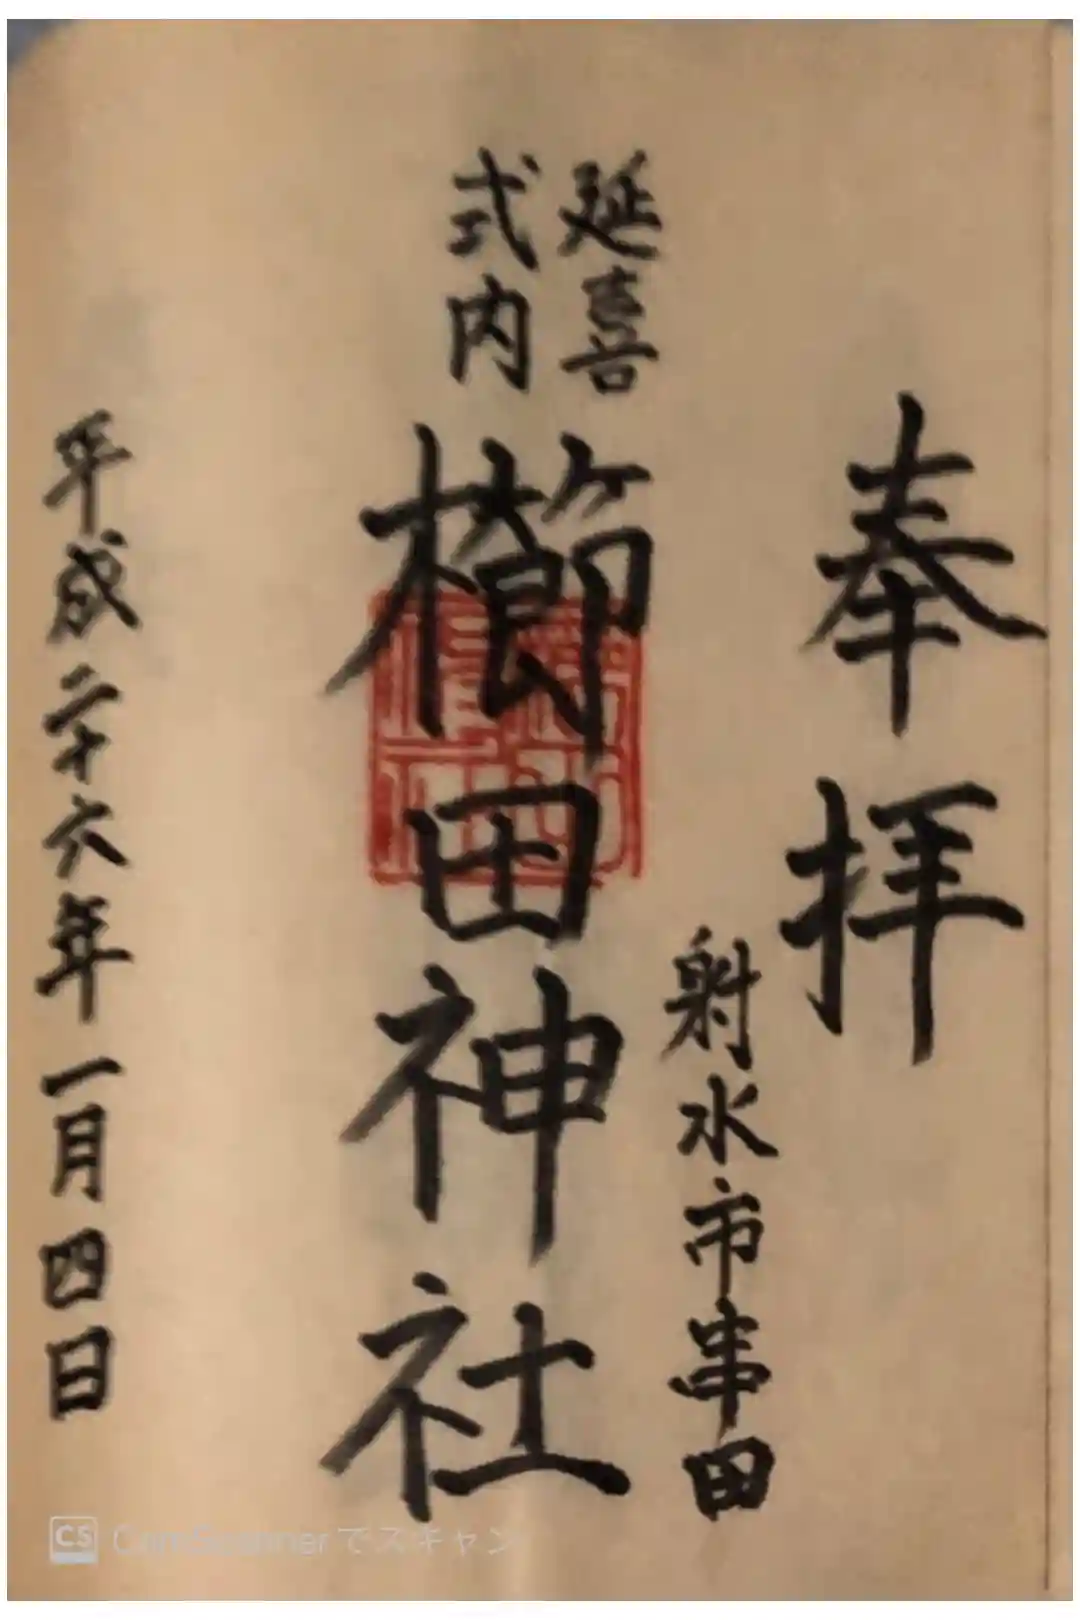 奉拝
射水市串田
延喜
式内
櫛田神社
平成二十六年一月四日
CS CamScannerでスキャン